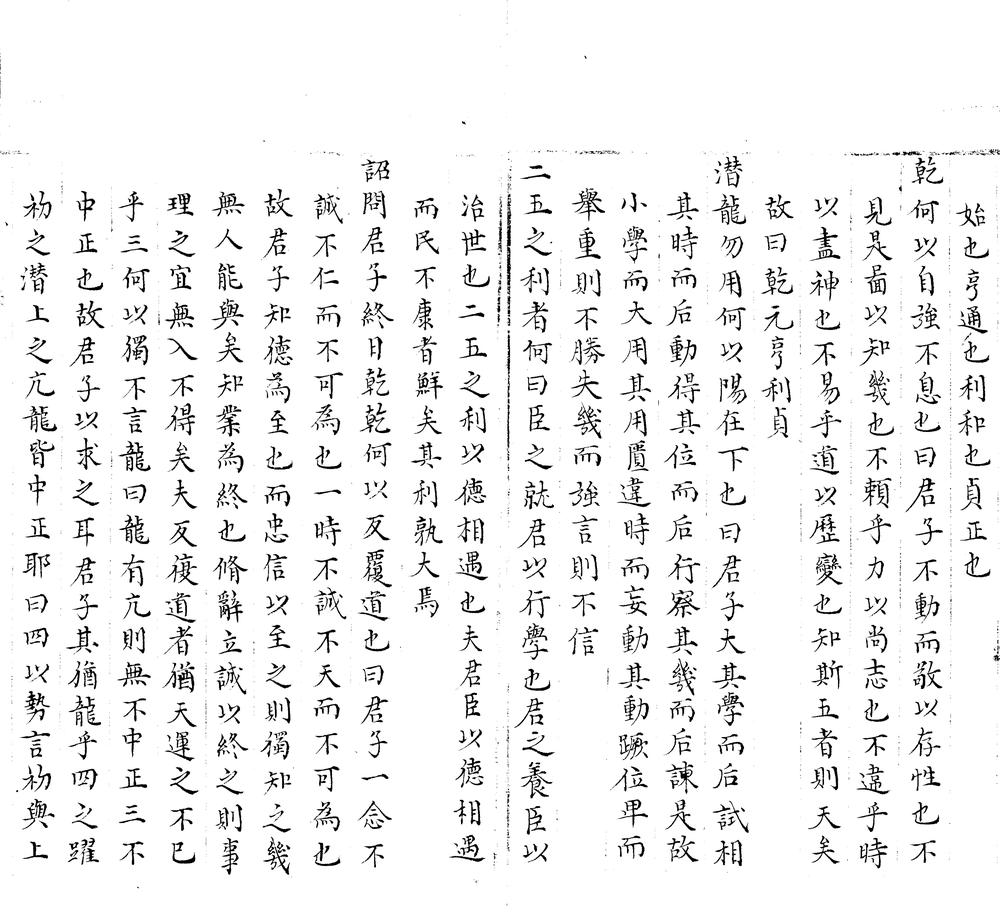 始也亨通也利和也貞正也
乾何以自強不息也曰君子不動而敬以存性也不
見是啚以知幾也不賴乎力以尚志也不違乎時
以盡神也不易乎道以歷變也知斯五者則天矣
故曰乾元亨利貞
潜龍勿用何以陽在下也曰君子大其學而后試相
其時而后動得其位而后行察其幾而后諫是故
小學而大用其用匱違時而妄動其動蹶位卑而
舉重則不勝失幾而強言則不信
二五之利者何曰臣之就君以行學也君之養臣以
治世也二五之利以德相遇也夫君臣以德相遇
而民不康者鮮矣其利孰大焉
詔問君子終日乾乾何以反覆道也曰君子一念不
誠不仁而不可為也一時不誠不天而不可為也
故君子知德為至也而忠信以至之則獨知之幾
無人能與矣知業為終也脩辭立誠以終之則事
理之宜無入不得矣夫反復道者猶天運之不已
乎三何以獨不言龍曰龍有亢則無不中正三不
中正也故君子以求之耳君子其猶龍乎四之躍
初之潜上之亢龍皆中正耶曰四以勢言初與上